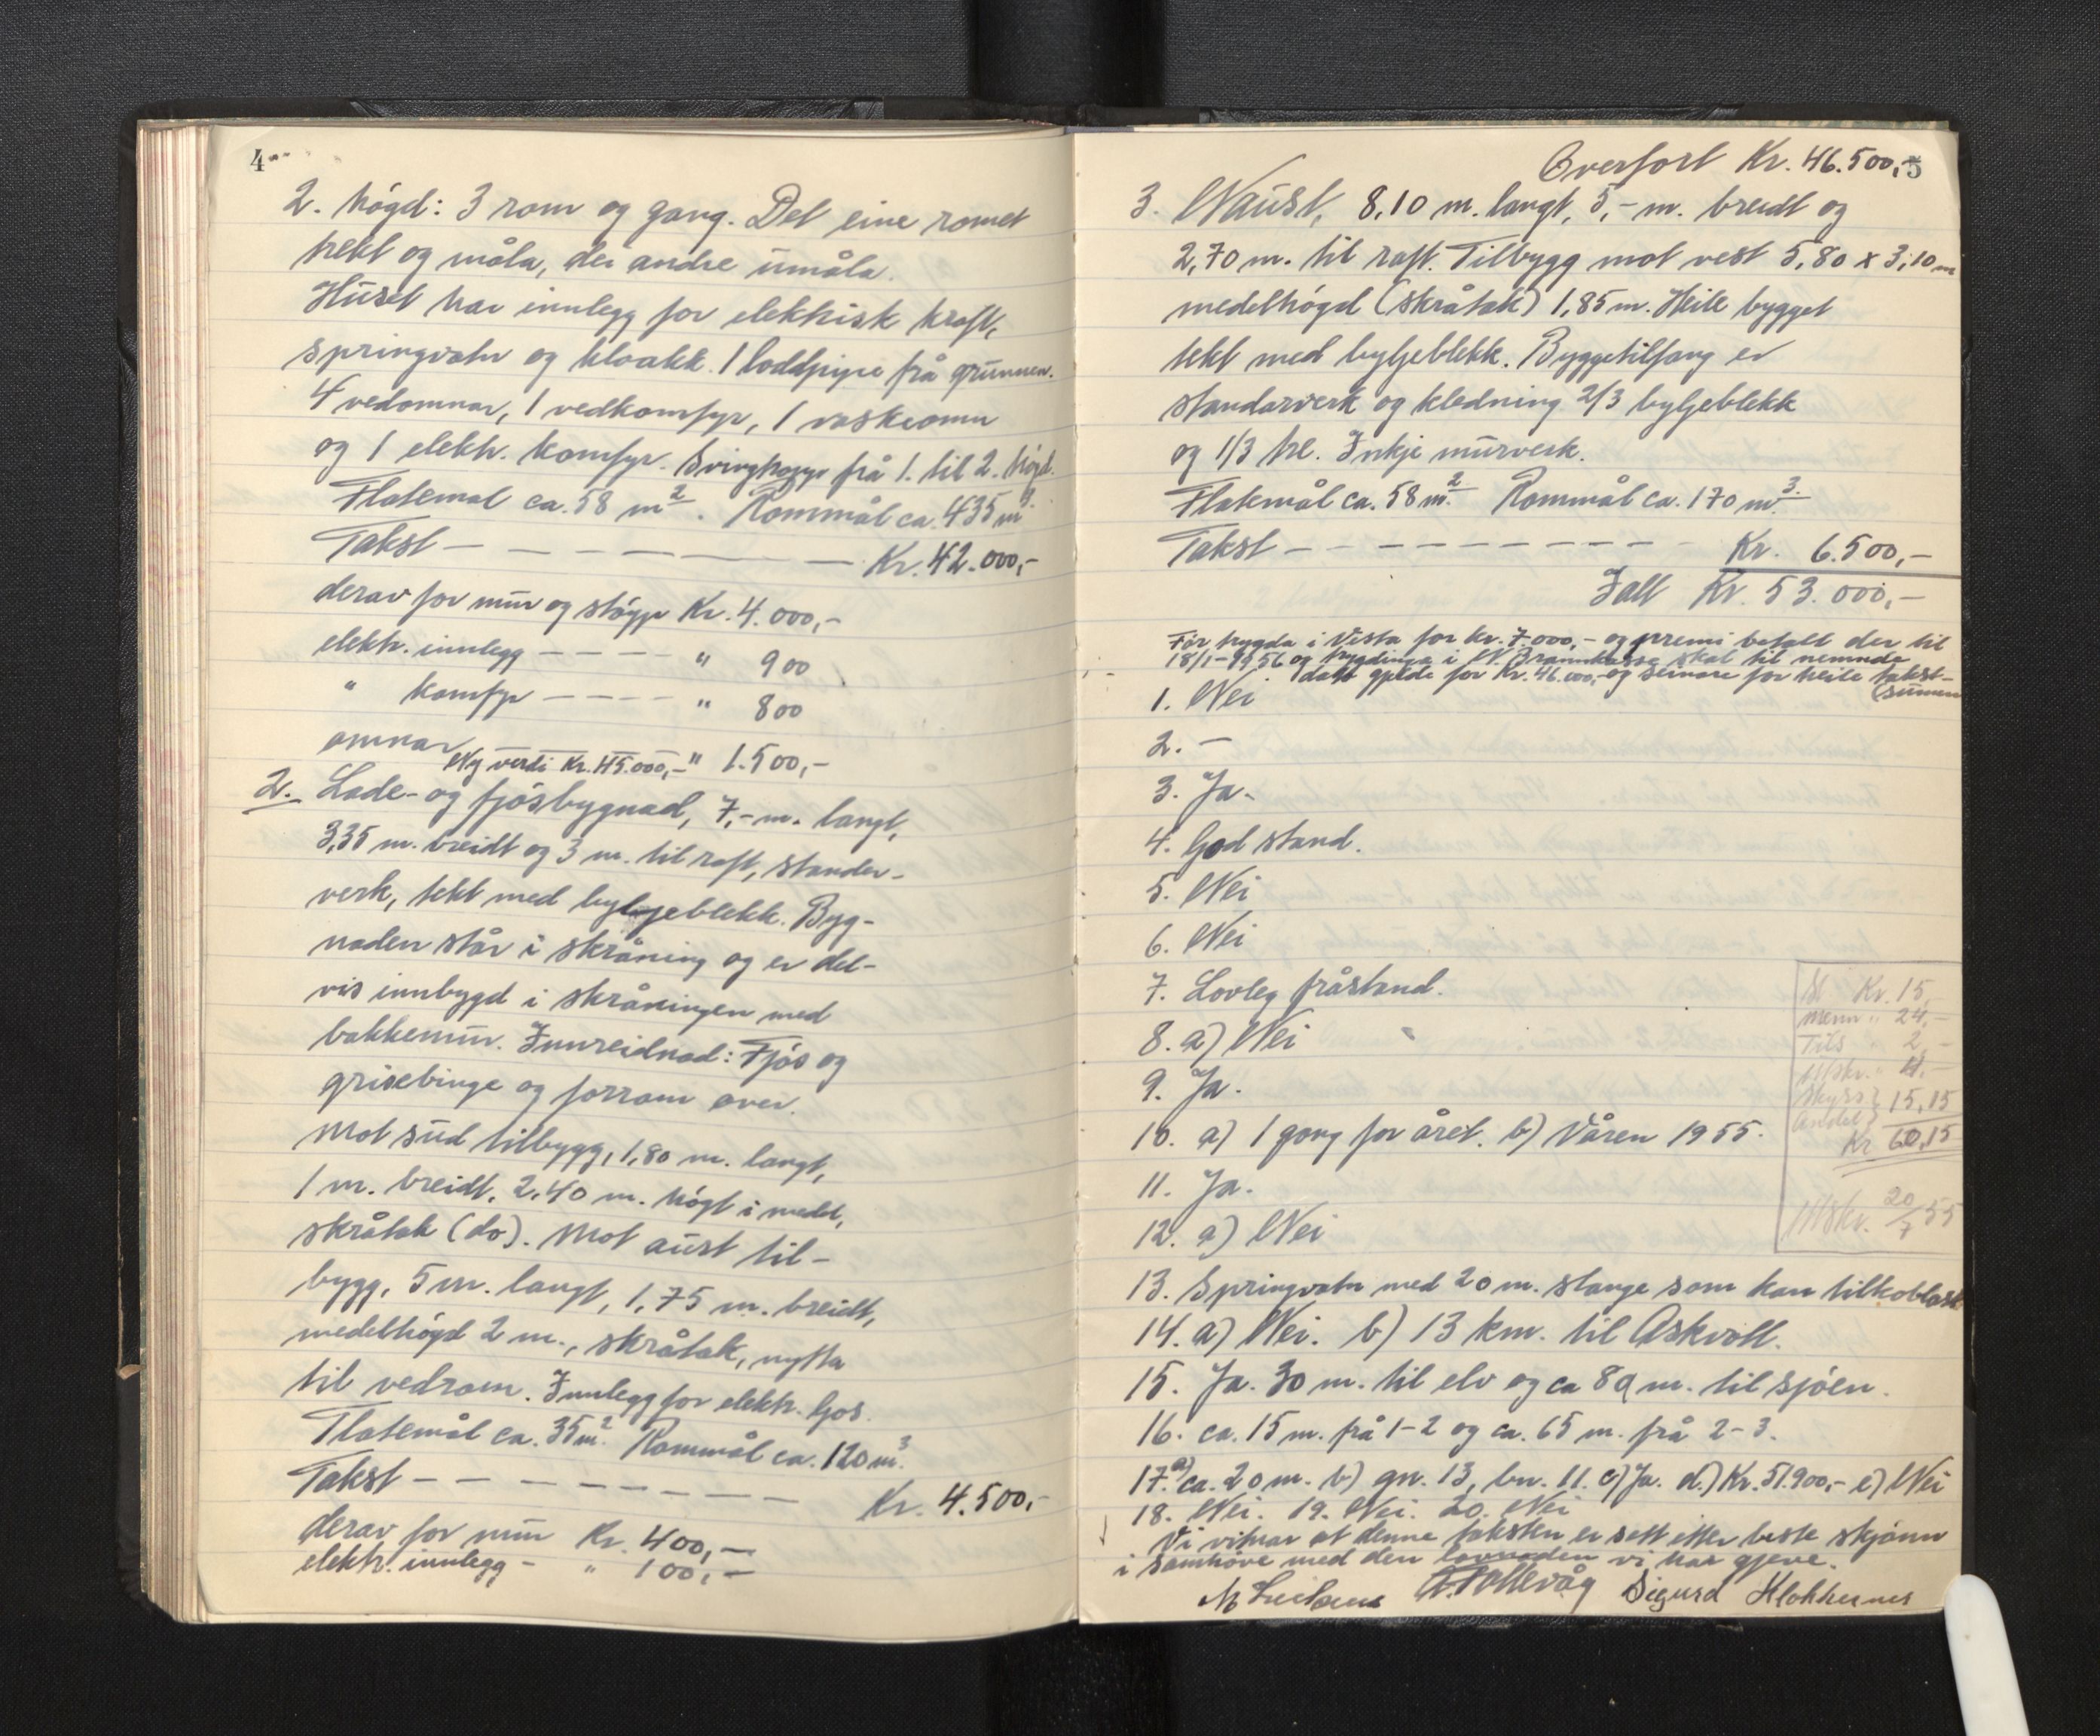 4
2. høgd: 3 rom og gang. Det eine romet
trekt og måla, dei andre umåla.
Huset har innlegg for elektrisk kraft,
springvatn og kloakk. 1 loddpipe frå grunnen.
4 vedomnar, 1 vedkomfyr, 1 vaskeomn
og 1 elektr. komfyr. Svingtrapp frå 1. til 2. høgd.
Flatemål ca. 58 m². Rommål ca. 435 m³.
Takst — — — — — — — Kr. 42.000,-
derav for mur og støyp Kr. 4.000,-
elektr. innlegg — — — — " 900
" komfyr — — — — " 800
omnar " 1.500,-
Ny verdi Kr. 45.000,-
2. Løde- og fjøsbygnad, 7,- m. langt,
3,35 m. breidt og 3 m. til raft, stander-
verk, tekt med bylgjeblekk. Byg-
naden står i skråning og er del-
vis innbygd i skråningen med
bakkemur. Innreidnad: Fjøs og
grisebinge og forrom over.
Mot sud tilbygg, 1,80 m. langt,
1 m. breidt, 2,40 m. høgt i medel,
skråtak (do). Mot aust til-
bygg, 5 m. langt, 1,75 m. breidt,
medelhøgd 2 m., skråtak, nytta
til vedrom. Innlegg for elektr. ljos.
Flatemål ca. 35 m². Rommål ca. 120 m³.
Takst — — — — — — — Kr. 4.500,-
derav for mur Kr. 400,-
elektr. innlegg - " 100,-
5
Overført Kr. 46.500,-
3. Naust, 8,10 m. langt, 5,- m. breidt og
2,70 m. til raft. Tilbygg mot vest 5,80 x 3,10 m
medelhøgd (skråtak) 1,85 m. Heile bygget
tekt med bylgjeblekk. Byggetilfang er
standarverk og kledning 2/3 bylgjeblekk
og 1/3 tre. Inkje murverk.
Flatemål ca. 58 m². Rommål ca. 170 m³.
Takst — — — — — — — — — Kr. 6.500,-
Ialt Kr. 53.000,-
Før trygda i Vesta for kr. 7.000,- og premi betalt der til
18/1-1956 og trygdinga i N. Brannkasse skal til nemnde
dato gjelde for Kr. 46.000,- og seinare for heile takst-
summen
1. Nei
2. —
3. Ja.
4. God stand.
5. Nei
6. Nei
7. Lovleg fråstand.
8. a) Nei
9. Ja.
10. a) 1 gong for året. b) Våren 1955.
11. Ja.
12. a) Nei
13. Springvatn med 20 m. slange som kan tilkoblast
14. a) Nei. b) 13 km. til Askvoll.
15. Ja. 30 m. til elv og ca 80 m. til sjøen.
16. ca. 15 m. frå 1-2 og ca. 65 m. frå 2-3.
17. a) ca. 20 m. b) gn. 13, bn. 11. c) Ja. d.) Kr. 51.900,- e) Nei
18. Nei. 19. Nei. 20. Nei
Vi vitnar at denne taksten er sett etter beste skjønn
i samhøve med den lovnaden vi har gjeve.
Sigurd Klokkernes
Kr. 15,
Menn " 24,-
Tils " 2,-
Utskr. " 4,-
Skyss }
Andel } 15,15
Kr 60,15
Utskr. 20/7 55